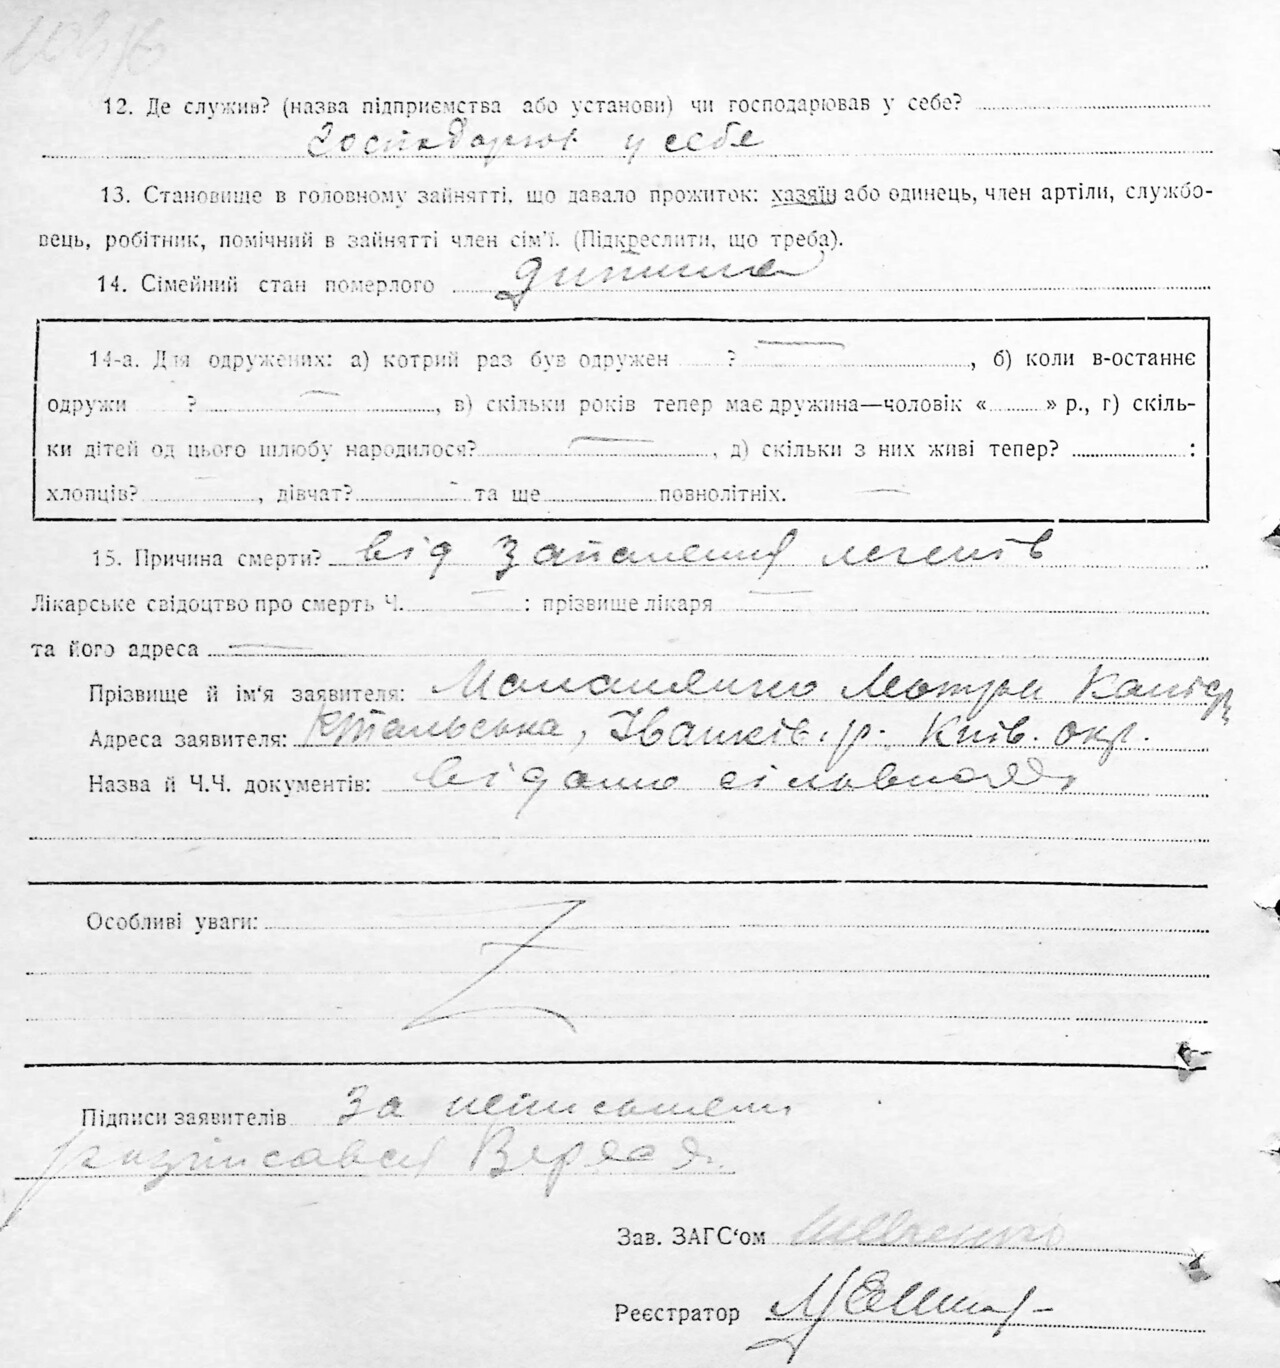 12. Де служив? (назва підприємства або установи) чи господарював у себе?
Господарює у себе
13. Становище в головному зайнятті, що давало прожиток: хазяїн або одинець, член артіли, службо-
вець, робітник, помічний в зайнятті член сім'ї. (Підкреслити, що треба).
14. Сімейний стан померлого дитина
14-а. Для одружених: а) котрий раз був одружен ? , б) коли в-останнє
одружи ? , в) скільки років тепер має дружина—чоловік « » р., г) скіль-
ки дітей од цього шлюбу народилося? , д) скільки з них живі тепер? :
хлопців? , дівчат? та ще повнолітніх.
15. Причина смерти? від запалення легенів
Лікарське свідоцтво про смерть Ч. : прізвище лікаря
та його адреса
Прізвище й ім'я заявителя: Мотри
Адреса заявителя: Іванків. р. Київ. окр.
Назва й Ч.Ч. документів: відомо сільвиконав
Особливі уваги:
Підписи заявителів За неписьмен
розписався
Зав. ЗАГС'ом Шевченко
Реєстратор